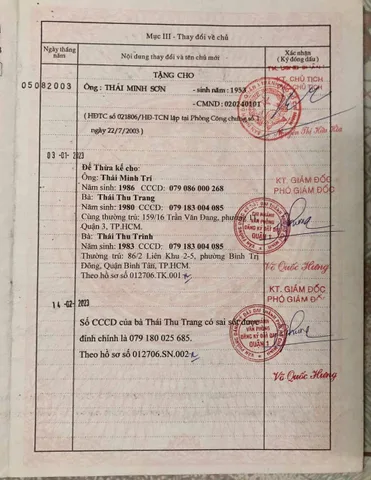 Mục III - Thay đổi về chủ
Ngày tháng năm
Nội dung thay đổi và tên chủ mới
Xác nhận
(Ký đóng dấu)
TẶNG CHO
05082003
Ông : THÁI MINH SƠN - sinh năm : 1953
- CMND : 020240101
(HĐTC số 021806/HĐ-TCN lập tại Phòng Công chứng số 1
ngày 22/7/2003 )
KT. CHỦ TỊCH
CHỦ TỊCH
03-01-2023
Để Thừa kế cho:
Ông: Thái Minh Trí
Năm sinh: 1986 CCCD: 079 086 000 268
Bà: Thái Thu Trang
Năm sinh: 1980 CCCD: 079 183 004 085
Cùng thường trú: 159/16 Trần Văn Đang, phường
Quận 3, TP.HCM.
Bà: Thái Thu Trinh
Năm sinh: 1983 CCCD: 079 183 004 085
Thường trú: 86/2 Liên Khu 2-5, phường Bình Trị
Đông, Quận Bình Tân, TP.HCM.
Theo hồ sơ số 012706.TK.001
KT. GIÁM ĐỐC
PHÓ GIÁM ĐỐC
CHI NHÁNH
VĂN PHÒNG
ĐĂNG KÝ ĐẤT ĐAI
QUẬN 3
Võ Quốc Hưng
14-02-2023
Số CCCD của bà Thái Thu Trang có sai sót được
đính chính là 079 180 025 685.
Theo hồ sơ số 012706.SN.002
KT. GIÁM ĐỐC
PHÓ GIÁM ĐỐC
CHI NHÁNH
VĂN PHÒNG
ĐĂNG KÝ ĐẤT ĐAI
QUẬN 3
Võ Quốc Hưng